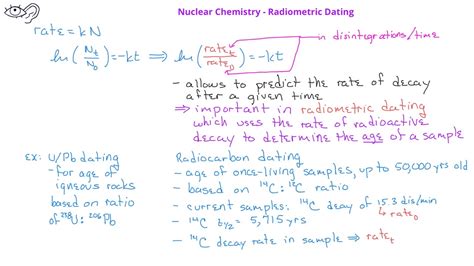 Nuclear Chemistry - Radiometric Dating
rate = kN
ln(Nt/N0) = -kt ⇒ ln(ratet/rate0) = -kt
in disintegrations/time
- allows to predict the rate of decay
after a given time
⇒ important in radiometric dating
which uses the rate of radioactive
decay to determine the age of a sample
ex: U/Pb dating
- for age of
igneous rocks
based on ratio
of ²³⁸U : ²⁰⁶Pb
Radiocarbon dating
- age of once-living samples, up to 50,000 yrs old
- based on ¹⁴C : ¹²C ratio
- current samples: ¹⁴C decay of 15.3 dis/min
↳ rate0
- ¹⁴C t1/2 = 5,715 yrs
- ¹⁴C decay rate in sample ⇒ ratet